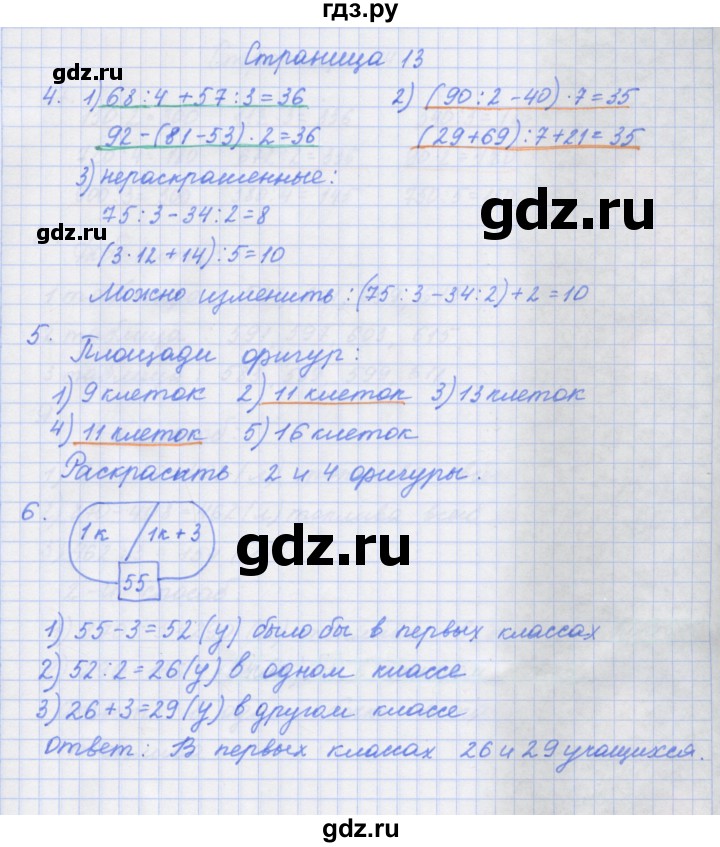 гдз.ру
Страница 13
gdz.ru
4. 1) 68:4+57:3=36 2) (90:2-40)·7=35
92-(81-53)·2=36 (29+69):7+21=35
3) нераскрашенные:
75:3-34:2=8
gdz.ru
gdz.ru
(3·12+14):5=10
Можно изменить: (75:3-34:2)+2=10
5. Площади фигур:
1) 9 клеток 2) 11 клеток 3) 13 клеток
4) 11 клеток 5) 16 клеток
Раскрасить 2 и 4 фигуры.
6. 1к 1к+3
gdz.ru
55
1) 55-3=52 (у) было бы в первых классах
2) 52:2=26 (у) в одном классе
3) 26+3=29 (у) в другом классе
Ответ: В первых классах 26 и 29 учащихся.
gdz.ru
gdz.ru